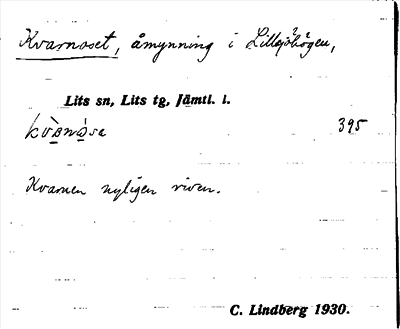 Kvarnoset, åmynning i Lillsjöhögen,
Lits sn, Lits tg, Jämtl. l.
395
Kvarnen nyligen riven.
C. Lindberg 1930.